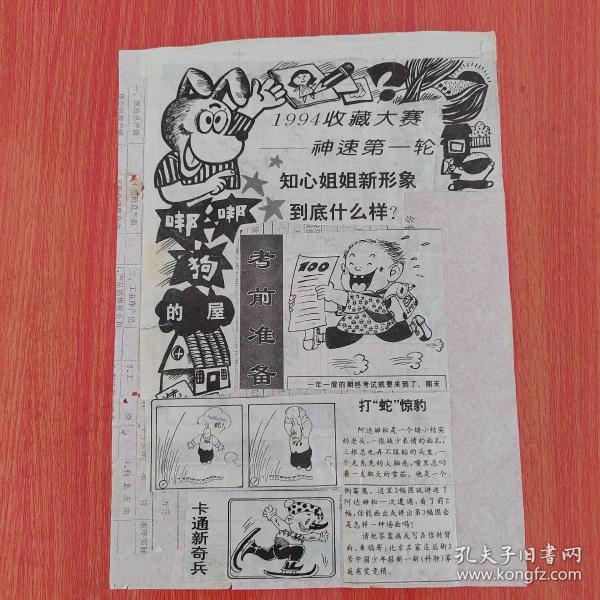 1994收藏大赛
——神速第一轮
知心姐姐新形象
到底什么样?
嘟嘟
狗
的屋
考前准备
100
一年一度的期终考试就要来到了。期末
打“蛇”惊豹
阿达姆松是一个矮小结实
的老头，一张缺少表情的面孔，
三根总也弄不服贴的头发，一
个光秃秃的大脑壳，嘴里总叼
着一支粗大的雪茄。他是一个
倒霉鬼。这里3幅图就讲述了
阿达姆松一次遭遇，看了前2
幅，你能画出或讲出第3幅图会
是怎样一种场面吗？
请把答案画或写在信封背
面，来稿寄：北京左家庄后街2
号中国少年报新一新(科特)家
庭有奖竞猜。
蛇!
卡通新奇兵
孔夫子旧书网
www.kongfz.com